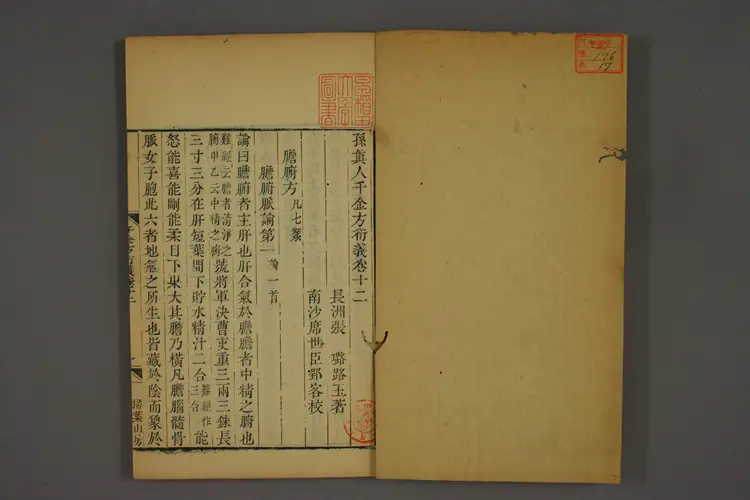 孫真人千金方衍義卷十二
長洲張 璐路玉著
南沙席世臣郢客校
膽腑方凡七類
膽腑脈論第一 論一首
論曰膽腑者主肝也肝合氣於膽膽者中精之腑也
難經云膽者清淨之
腑甲乙云中精之腑號將軍決曹吏重三兩三銖長
三寸三分在肝短葉間下貯水精汁二合難經作
三合能
怒能喜能剛能柔目下果大其膽乃橫凡膽腦髓骨
脈女子胞此六者地氣之所生也皆藏於陰而象於
千金方衍義卷十二
一
掃葉山房
早稻田
大學
圖書
176
17